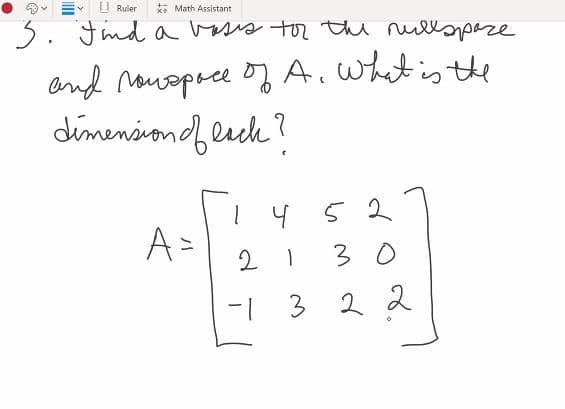 Ruler Math Assistant
3. Find a basis for the nullspace
and rowspace of A. What is the
dimension of each?
A = [ 1 4 5 2
2 1 3 0
-1 3 2 2 ]